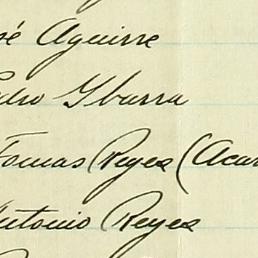 sé Aguirre
edro Ybarra
Tomas Reyes (Acar
Antonio Reyes